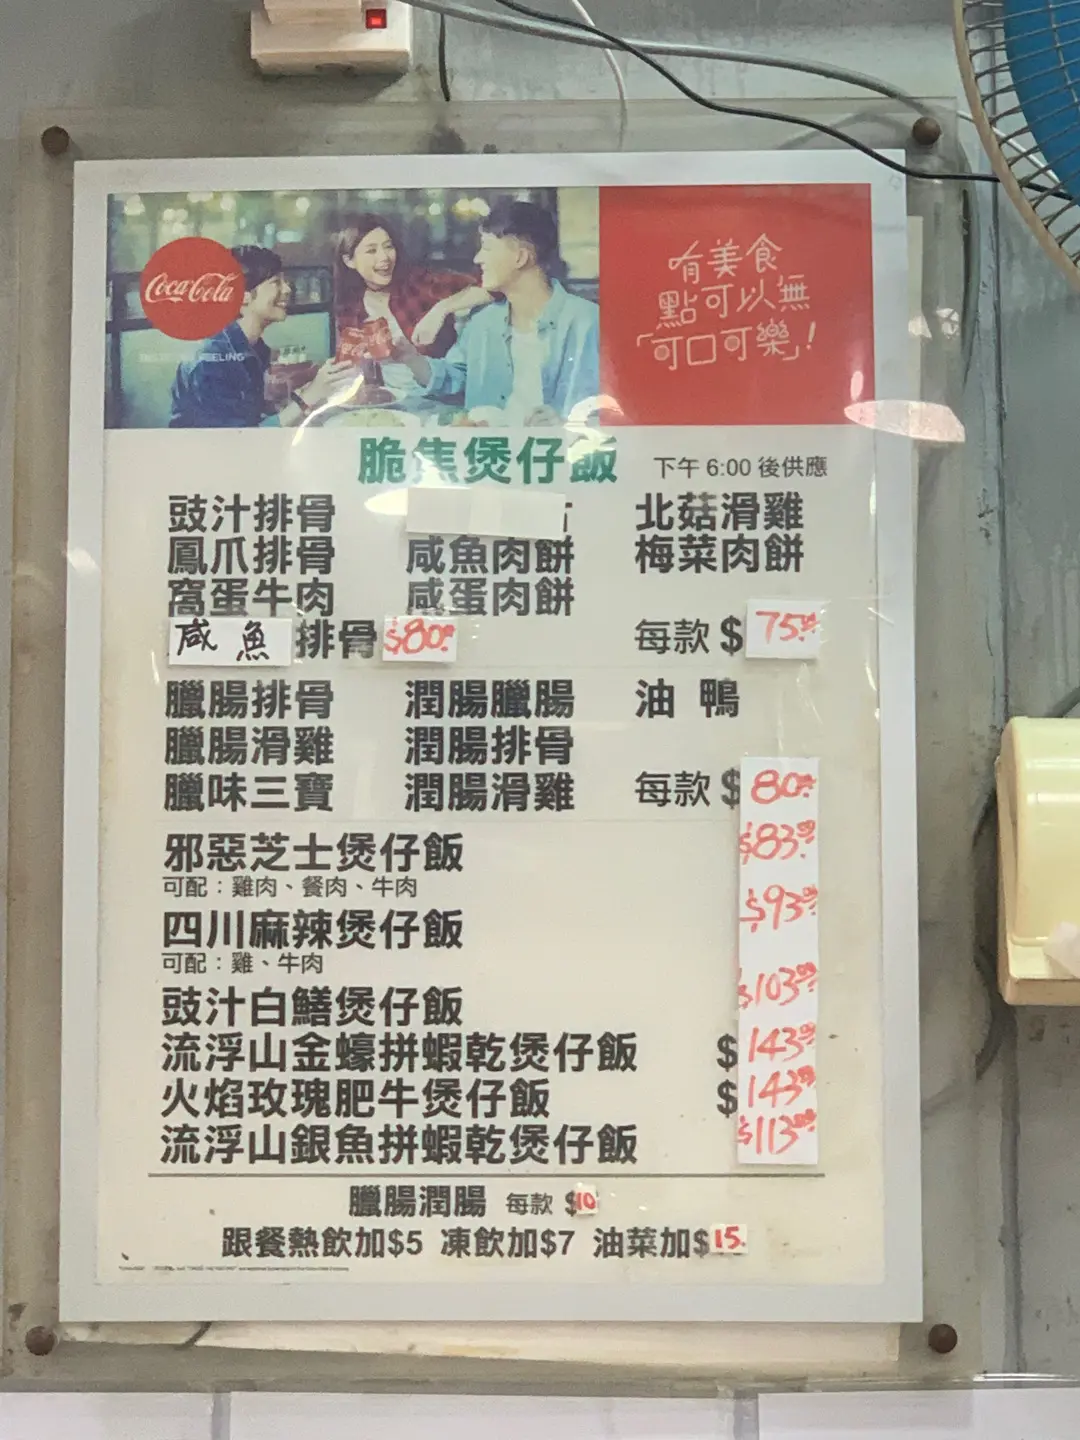 Coca-Cola
有美食
點可以無
「可口可樂」!
脆焦煲仔飯 下午 6:00 後供應
豉汁排骨 北菇滑雞
鳳爪排骨 咸魚肉餅 梅菜肉餅
窩蛋牛肉 咸蛋肉餅
咸魚排骨 $80.00 每款 $75.00
臘腸排骨 潤腸臘腸 油鴨
臘腸滑雞 潤腸排骨
臘味三寶 潤腸滑雞 每款 $80.00
邪惡芝士煲仔飯 $83.00
可配：雞肉、餐肉、牛肉
四川麻辣煲仔飯 $93.00
可配：雞、牛肉
豉汁白鱔煲仔飯 $103.00
流浮山金蠔拼蝦乾煲仔飯 $143.00
火焰玫瑰肥牛煲仔飯 $143.00
流浮山銀魚拼蝦乾煲仔飯 $113.00
臘腸潤腸 每款 $10
跟餐熱飲加$5 凍飲加$7 油菜加$15.